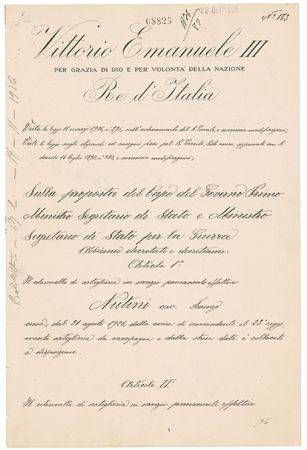 08825
N. 183
Vittorio Emanuele III
PER GRAZIA DI DIO E PER VOLONTÀ DELLA NAZIONE
Re d'Italia
Vista la legge 11 marzo 1926, n. 396, sull'ordinamento del R. Esercito, e successive modificazioni;
Viste le leggi sugli stipendi ed assegni fissi pel R. Esercito, testo unico, approvato con R.
decreto 14 luglio 1898, n. 380, e successive modificazioni;
Sulla proposta del Capo del Governo Primo
Ministro Segretario di Stato e Ministro
Segretario di Stato per la Guerra
Abbiamo decretato e decretiamo:
Articolo 1°
Il colonnello di artiglieria in servizio permanente effettivo
Nutini cav. Lorenzo
cessa, dal 21 agosto 1926, dalla carica di comandante il 22° reggi,
mento artiglieria da campagna e dalla stessa data è collocato
a disposizione.
Articolo II°
Il colonnello di artiglieria in servizio permanente effettivo